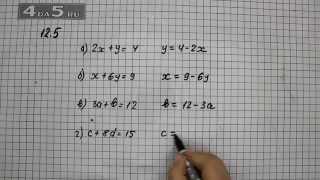 4DA5.RU
12.5
а) 2x+y=4 y=4-2x
б) x+6y=9 x=9-6y
в) 3a+b=12 b=12-3a
г) c+8d=15 c=